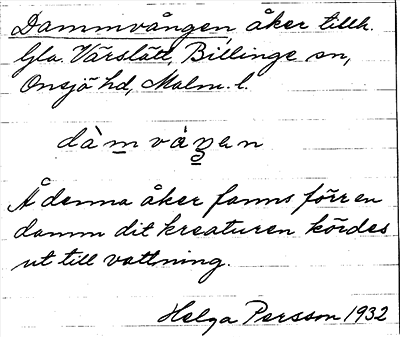 Dammvången, åker tillh.
Gla. Värslätt, Billinge sn,
Onsjö hd, Malm. l.
dàmváŋen
Å denna åker fanns förr en
damm dit kreaturen kördes
ut till vattning.
Helga Persson 1932